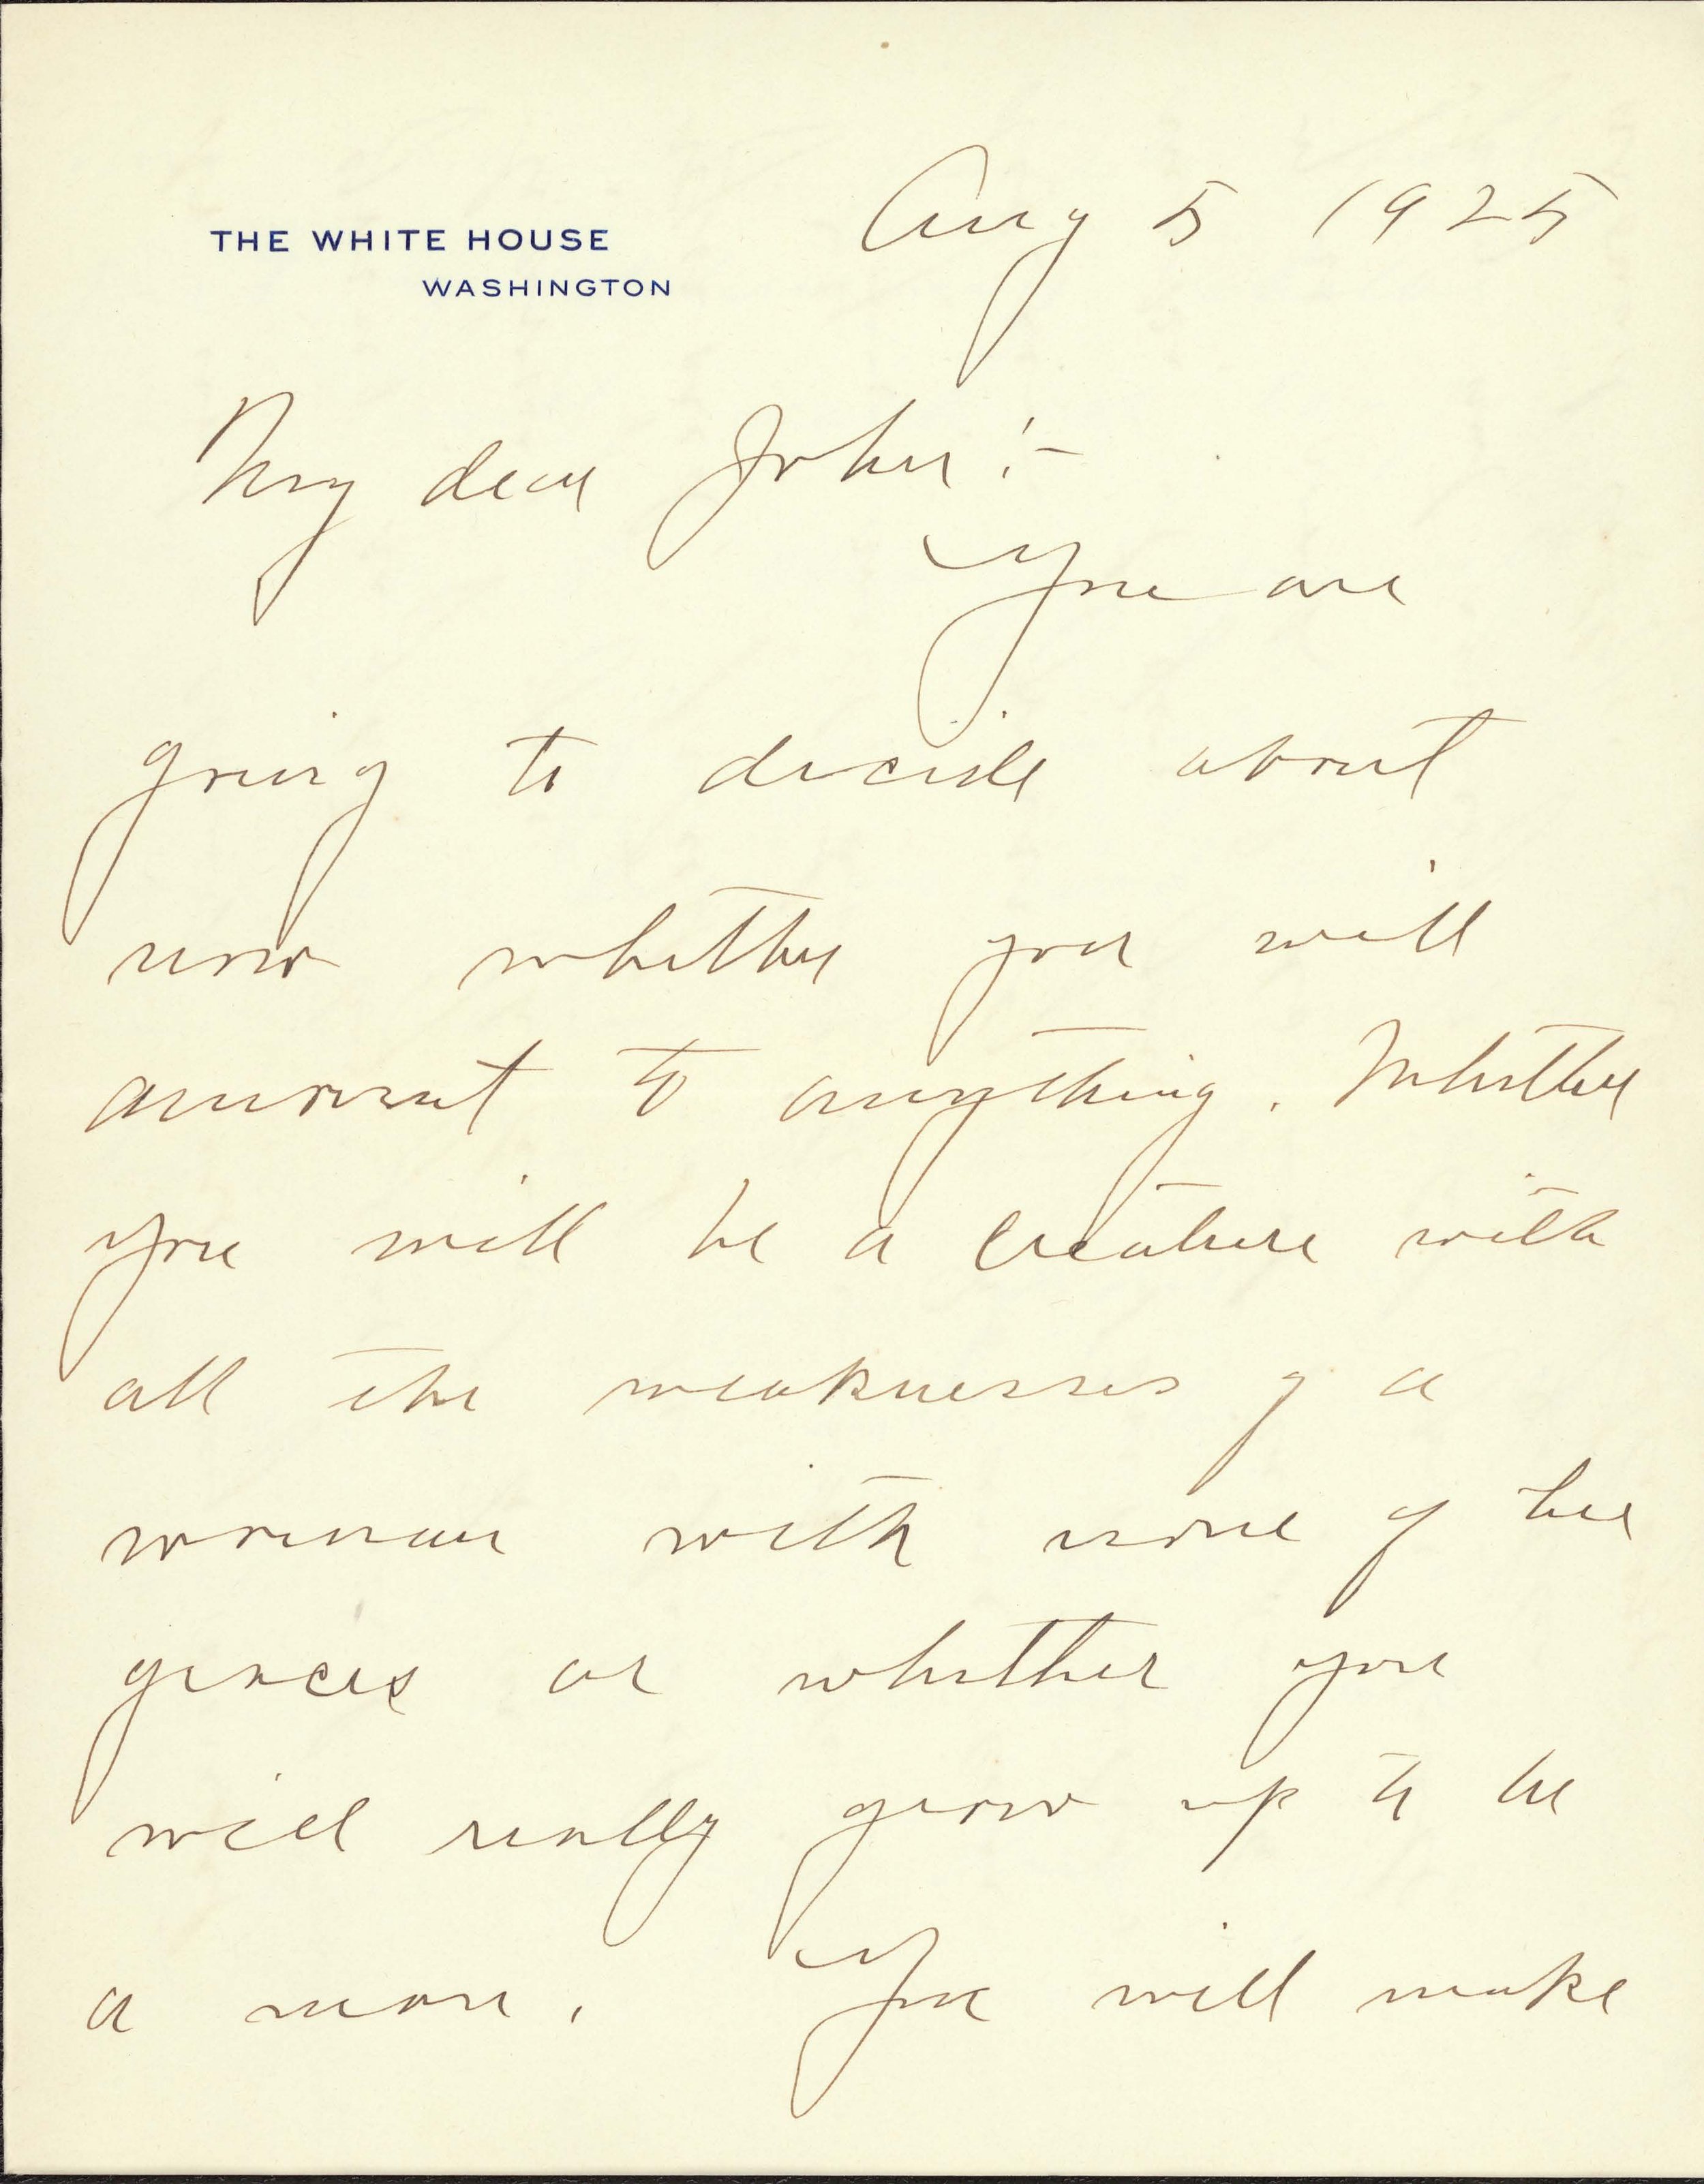 THE WHITE HOUSE
WASHINGTON
Aug 5 1925
My dear John:-
You are
going to decide about
now whether you will
amount to anything. Whether
you will be a creature with
all the weaknesses of a
woman with none of her
graces or whether you
will really grow up to be
a man. You will make